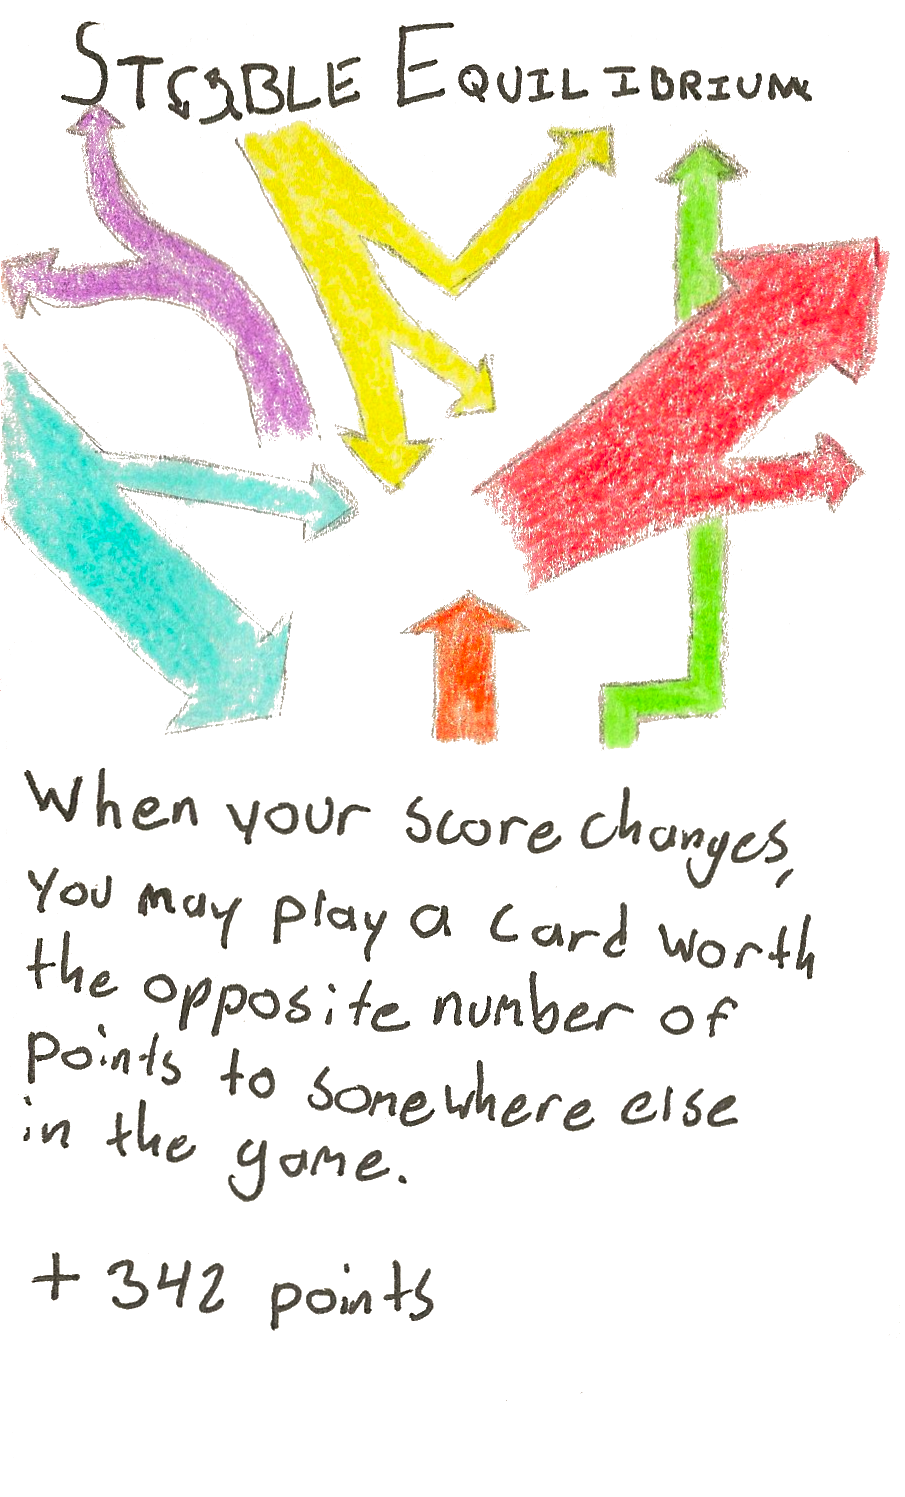 STABLE EQUILIBRIUM
When your score changes,
you may play a card worth
the opposite number of
points to somewhere else
in the game.
+ 342 points